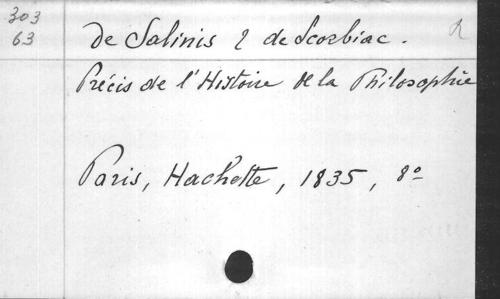 303
63
de Salinis & de Scorbiac.
R
Précis de l'Histoire de la Philosophie
Paris, Hachette, 1835, 8º